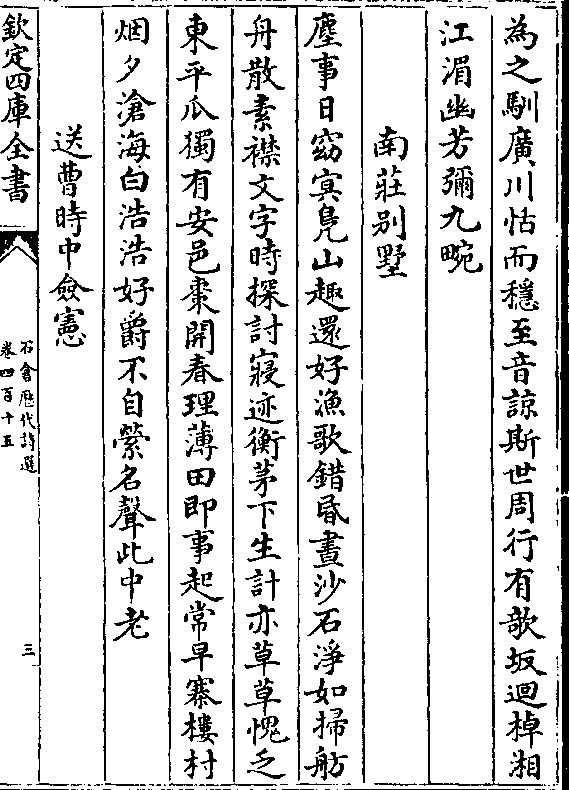 為之馴廣川恬而穩至音諒斯世周行有欹坂迴棹湘
江湄幽芳彌九畹
南莊别墅
塵事日窈㝠鳬山趣還好漁歌錯昬晝沙石淨如掃舫
舟散素襟文字時探討寢迹衡茅下生計亦草草愧乏
東平瓜獨有安邑棗開春理薄田即事起常早寨樓村
烟夕滄海白浩浩好爵不自縈名聲此中老
送曹時中僉憲
欽定四庫全書
石倉歴代詩選
卷四百十五
三